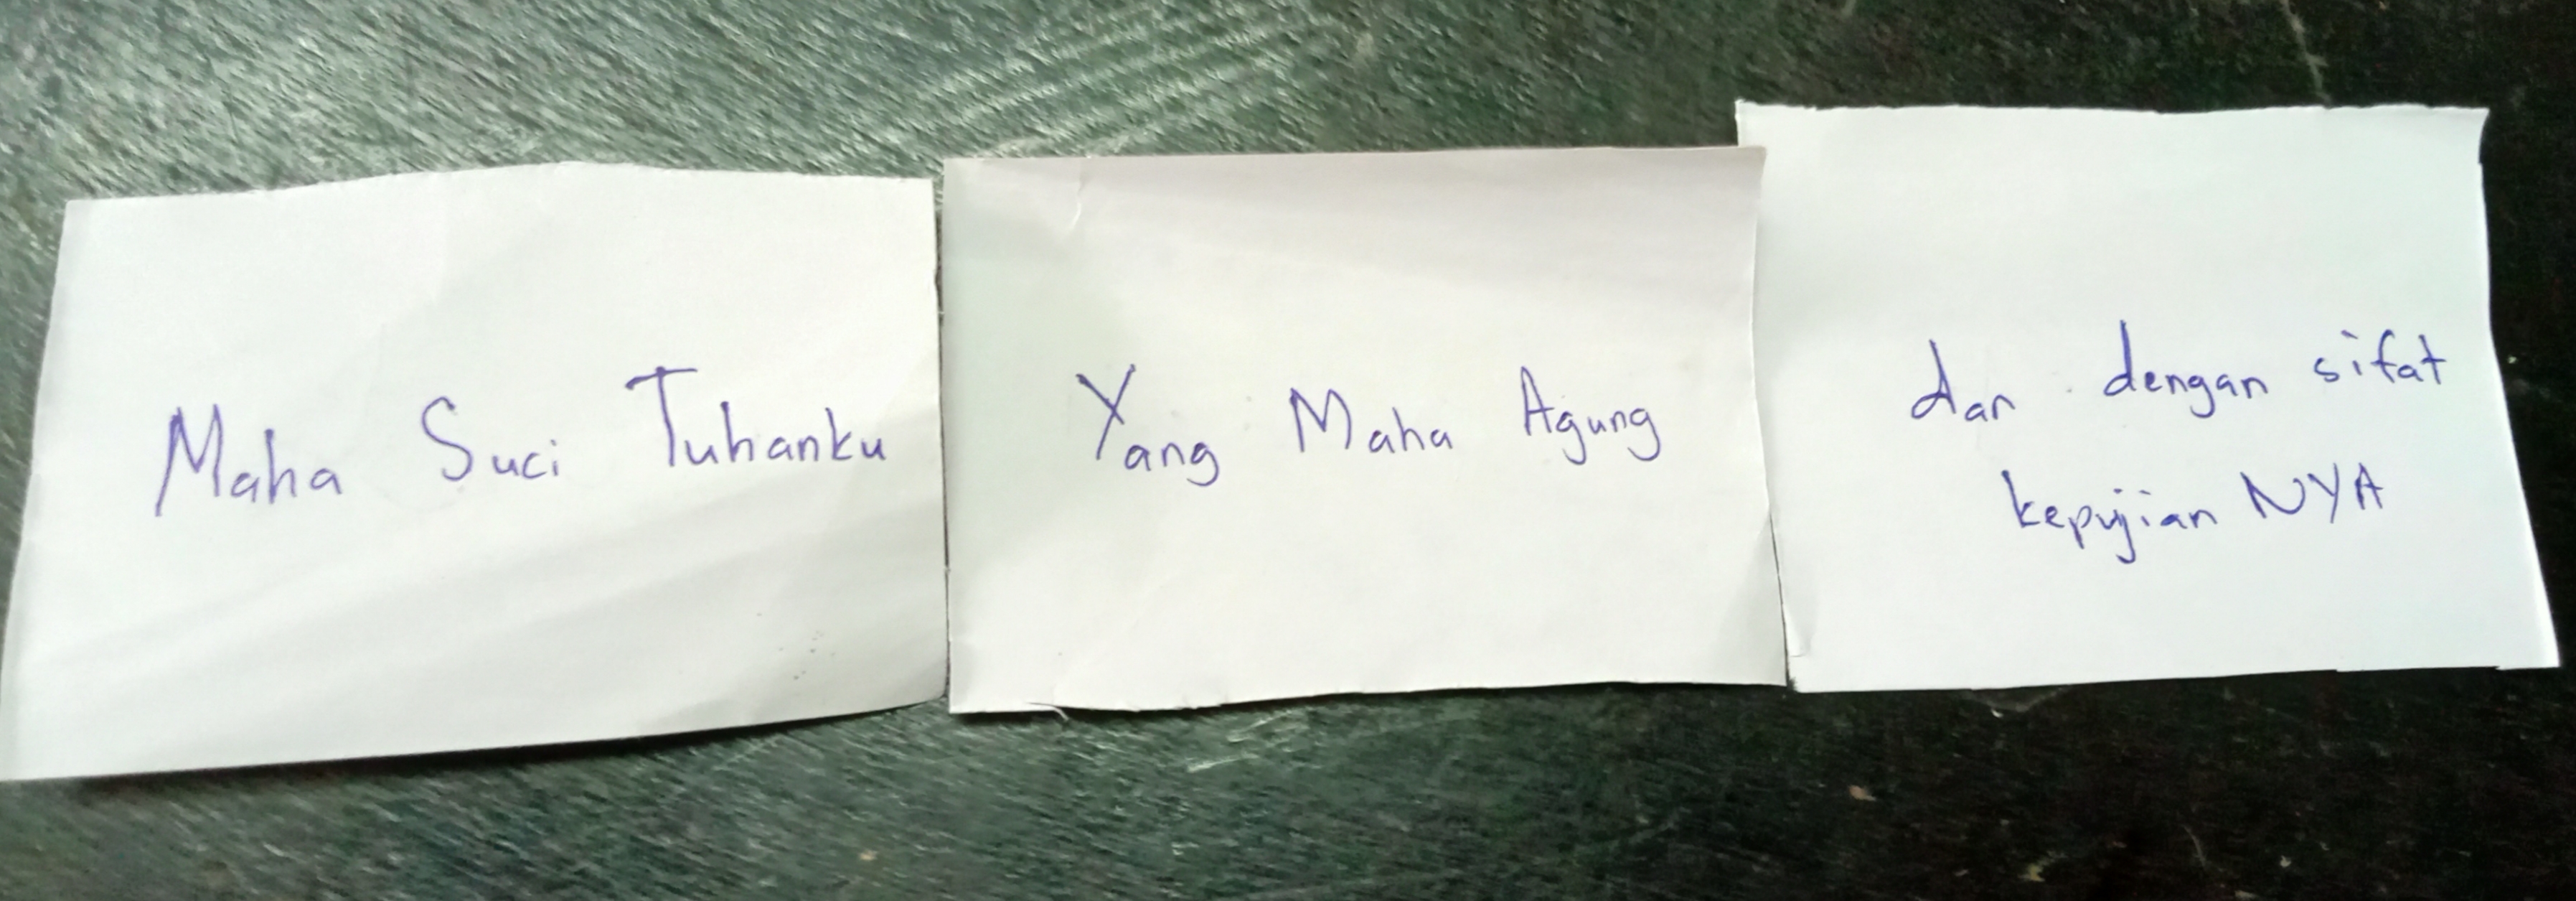 Maha Suci Tuhanku
Yang Maha Agung
dan dengan sifat
kepujian NYA